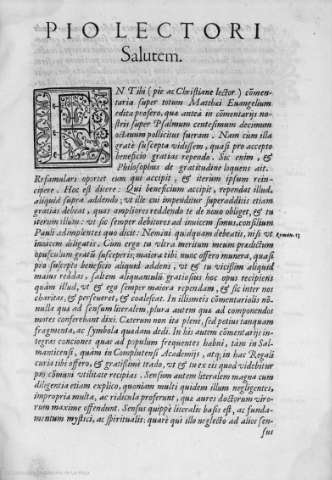 PIO LECTORI
Salutem.
EN Tibi (pie ac Christiane lector) cōmen-
taria super totum Matthæi Euangelium
edita profero, quæ antea in cōmentarijs no-
stris super Psalmum centesimum decimum
octauum pollicitus fueram. Nam cùm illa
gratè suscepta vidissem, quasi pro accepto
beneficio gratias rependo. Sic enim, &
Philosophus de gratitudine loquens ait.
Refamulari oportet eum qui accipit, & iterum ipsum rein-
cipere. Hoc est dicere: Qui beneficium accipit, rependat illud,
aliquid supra addendo; vt ille cui impenditur superadditis etiam
gratias debeat, quas ampliores reddendo te de nouo obliget, & tu
iterum illum: vt sic semper debitores ad inuicem simus, consilium
Pauli adimplentes quo dicit: Nemini quidquam debeatis, nisi vt
inuicem diligatis. Cùm ergo tu vltra meritum meum prædictum
opusculum gratū susceperis; maiora tibi nunc offero munera, quasi
pro suscepto beneficio aliquid addens, vt & tu vicissim aliquid
maius reddas, saltem aliquantulū gratius hoc opus recipiens
quàm illud, vt & ego semper maiora rependam, & sic inter nos
charitas, & perseueret, & coalescat. In illis meis cōmentariolis nō-
nulla quæ ad sensum literalem, plura autem quæ ad componendos
mores conferebant dixi. Cæterum non ita plenè, sed potius tanquam
fragmenta, ac symbola quædam dedi. In his autem cōmentarijs in-
tegras conciones quas ad populum frequentes habui, tàm in Sal-
manticensi, quàm in Complutensi Academijs, atq; in hac Regali
curia tibi offero, & gratissimè trado, vt & tu ex eis quod videbitur
pro cōmuni vtilitate recipias. Sensum autem literalem magna cum
diligentia etiam explico, quoniam multi quidem illum negligentes,
impropria multa, ac ridicula proferunt, quæ aures doctorum viro-
rum maximè offendunt. Sensus quippè literalis basis est, ac funda-
mentum mystici, ac spiritualis: quare qui illo neglecto ad alios sen-
sus